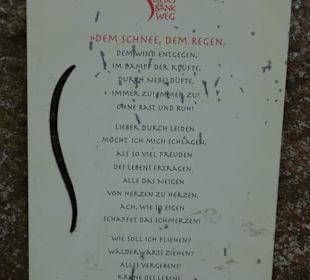 LIEBES
BANK
WEG
»DEM SCHNEE, DEM REGEN,
DEM WIND ENTGEGEN,
IM DAMPF DER KLÜFTE,
DURCH NEBELDÜFTE,
IMMER ZU! IMMER ZU!
OHNE RAST UND RUH!
LIEBER DURCH LEIDEN
MÖCHT ICH MICH SCHLAGEN,
ALS SO VIEL FREUDEN
DES LEBENS ERTRAGEN,
ALLE DAS NEIGEN
VON HERZEN ZU HERZEN,
ACH, WIE SO EIGEN
SCHAFFET DAS SCHMERZEN!
WIE SOLL ICH FLIEHEN?
WÄLDERWÄRTS ZIEHEN?
ALLES VERGEBENS!
KRONE DES LEBENS,